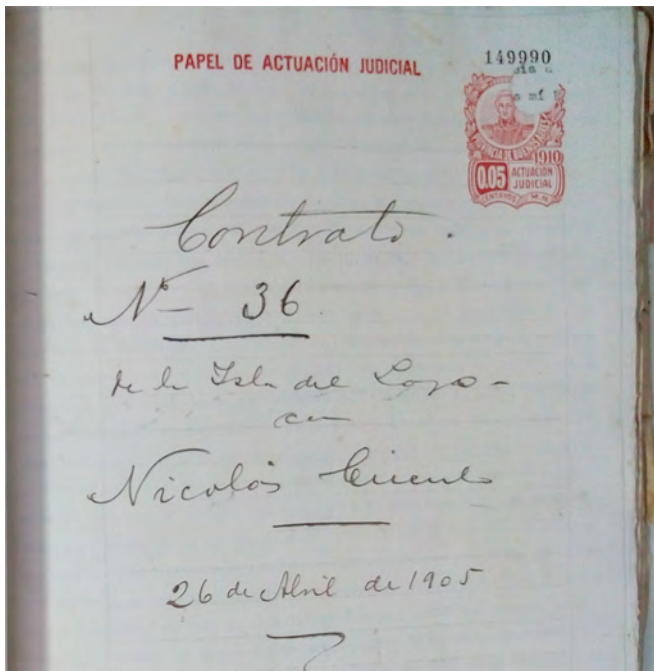 PAPEL DE ACTUACIÓN JUDICIAL
149990
1910
0.05 ACTUACIÓN
JUDICIAL
CENTAVOS M.N.
Contrato.
Nº 36
de la Isla del
con
Nicolás
26 de Abril de 1905